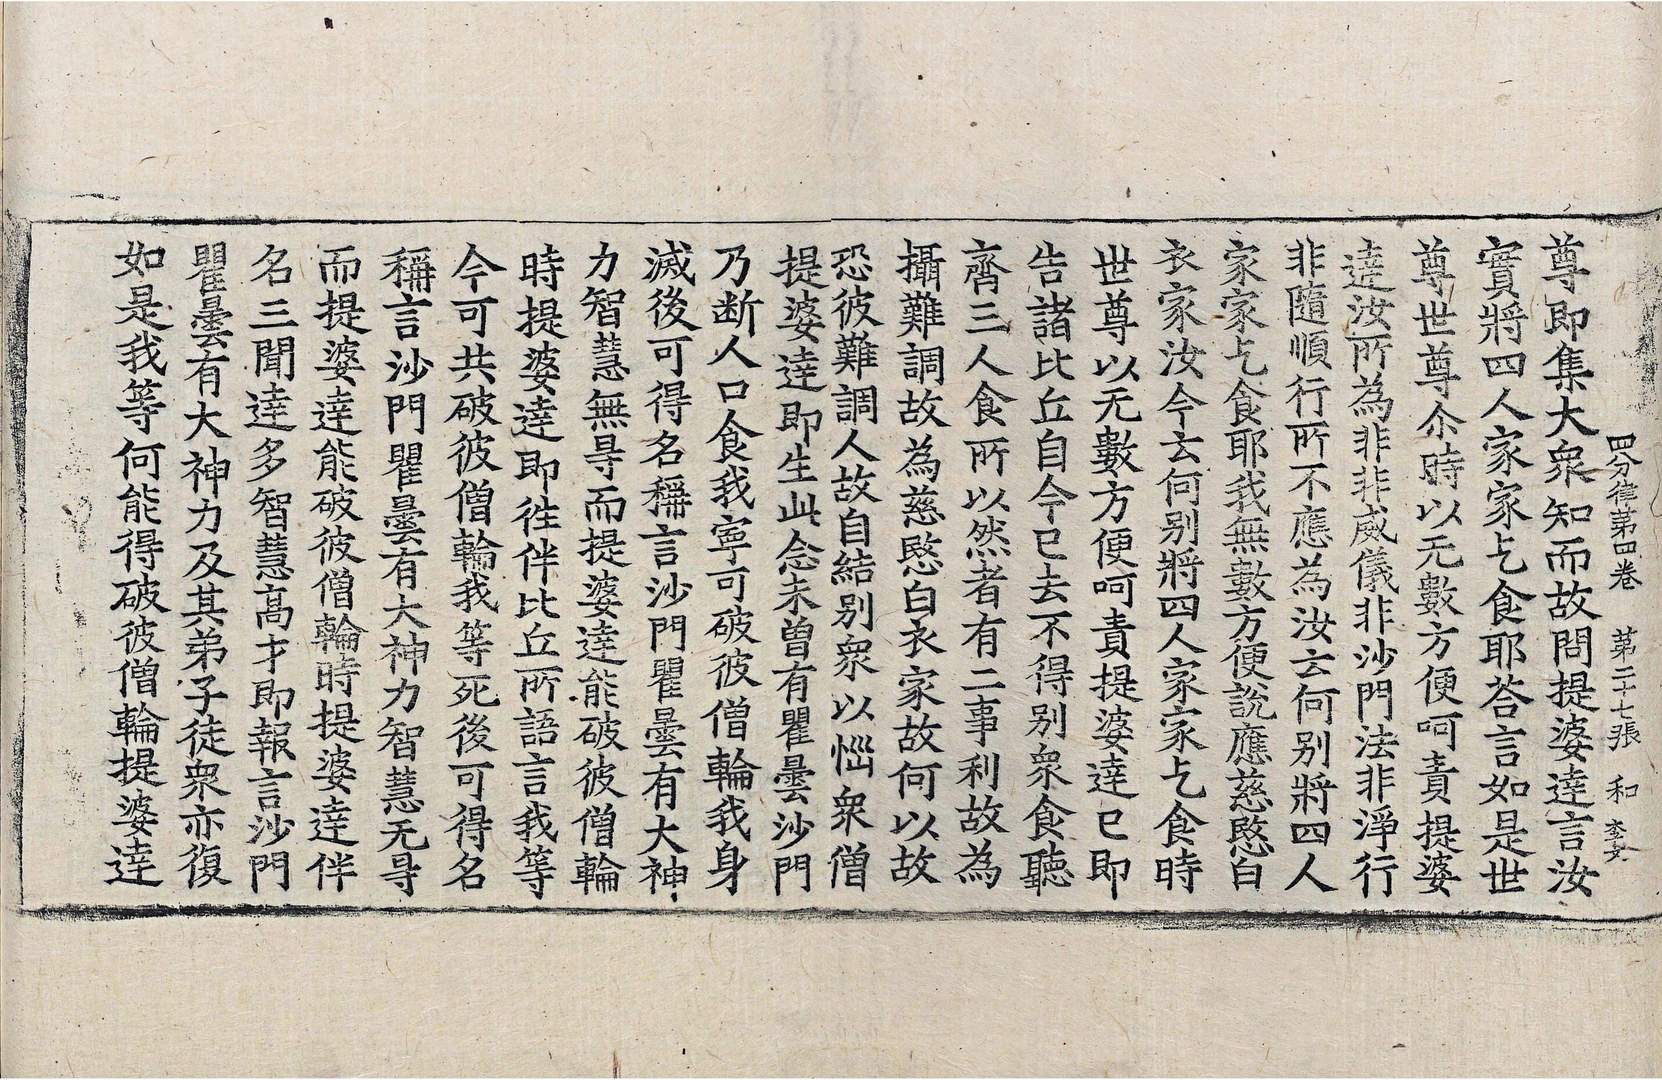 四分律第四卷 第二十七張 和
尊即集大衆知而故問提婆達言汝
實將四人家家乞食耶荅言如是世
尊世尊尒時以无數方便呵責提婆
達汝所為非非威儀非沙門法非淨行
非隨順行所不應為汝云何別將四人
家家乞食耶我無數方便說應慈愍白
衣家汝今云何別將四人家家乞食時
世尊以无數方便呵責提婆達已即
告諸比丘自今已去不得別衆食聽
齊三人食所以然者有二事利故為
攝難調故為慈愍白衣家故何以故
恐彼難調人故自結別衆以惱衆僧
提婆達即生此念未曽有瞿曇沙門
乃断人口食我寧可破彼僧輪我身
滅後可得名稱言沙門瞿曇有大神
力智慧無㝵而提婆達能破彼僧輪
時提婆達即徃伴比丘所語言我等
今可共破彼僧輪我等死後可得名
稱言沙門瞿曇有大神力智慧无㝵
而提婆達能破彼僧輪時提婆達伴
名三聞達多智慧高才即報言沙門
瞿曇有大神力及其弟子徒衆亦復
如是我等何能得破彼僧輪提婆達